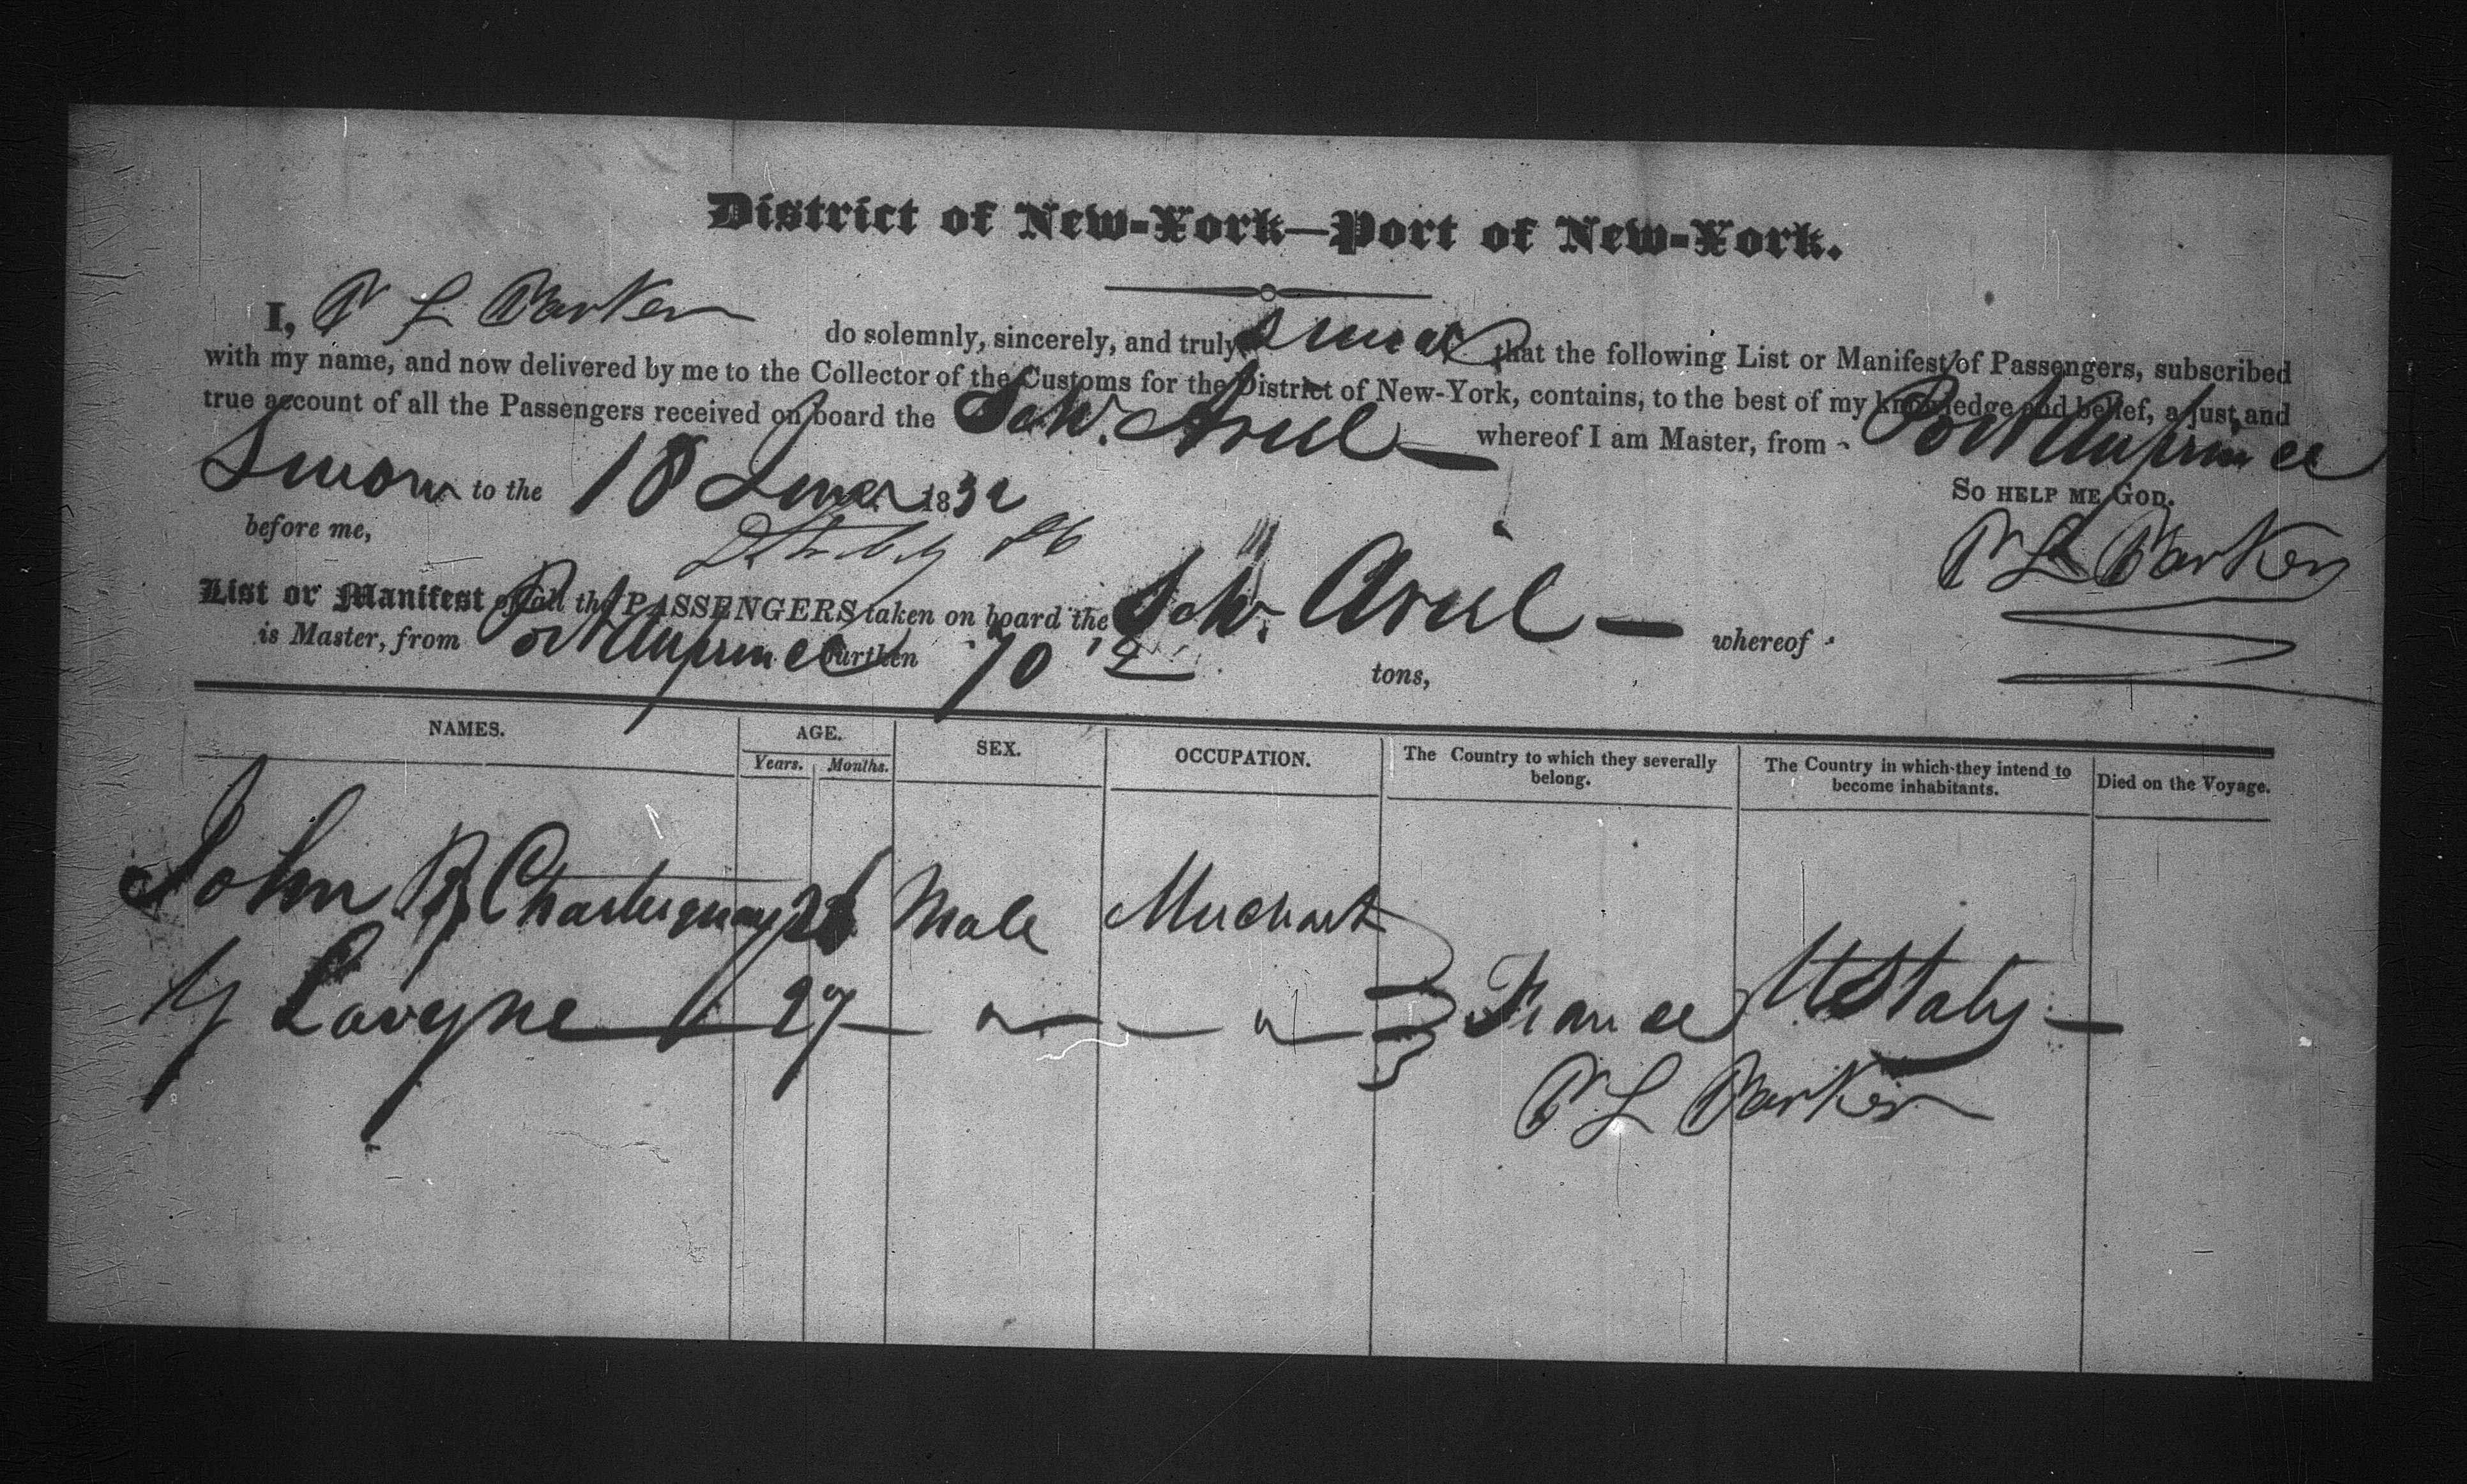 District of New-York—Port of New-York.
I, P L Barker do solemnly, sincerely, and truly swear that the following List or Manifest of Passengers, subscribed
with my name, and now delivered by me to the Collector of the Customs for the District of New-York, contains, to the best of my knowledge and belief, a just and
true account of all the Passengers received on board the Schr. Ariel — whereof I am Master, from Port Au prince
Sworn to the 18 June 1832 So HELP ME GOD.
before me, P L Barker
List or Manifest of all the PASSENGERS taken on board the Schr. Ariel — whereof
is Master, from Port Au prince burthen 70 tons,
NAMES. AGE. SEX. OCCUPATION. The Country to which they severally belong. The Country in which they intend to become inhabitants. Died on the Voyage.
Years. Months.
John Male Merchant
27 — " — — " — France U States —
P L Barker